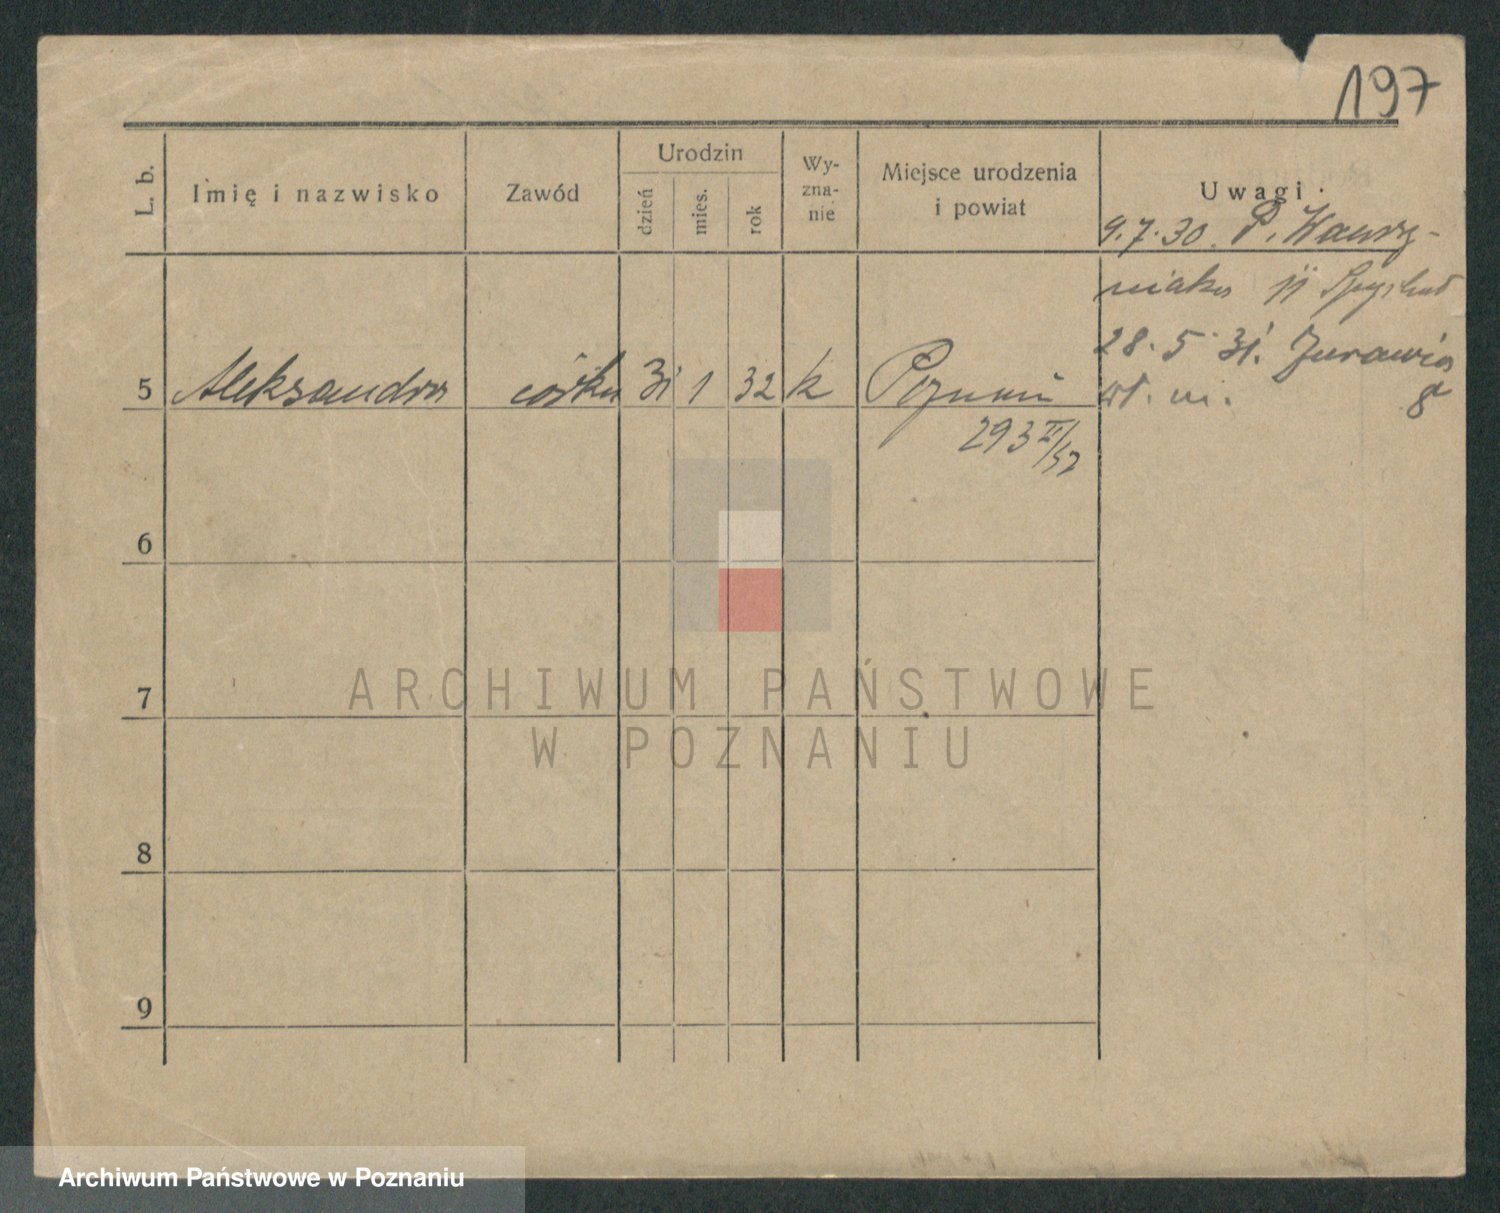 197
L. b.
Imię i nazwisko
Zawód
Urodzin
dzień
mies.
rok
Wy-
zna-
nie
Miejsce urodzenia
i powiat
Uwagi
9.7.30. P.
niaka
28.5.31.
wł. m. 8
5 Aleksandra córka 31 1 32 k Poznań
293 II/32
6
7
8
9
ARCHIWUM PAŃSTWOWE
W POZNANIU
Archiwum Państwowe w Poznaniu